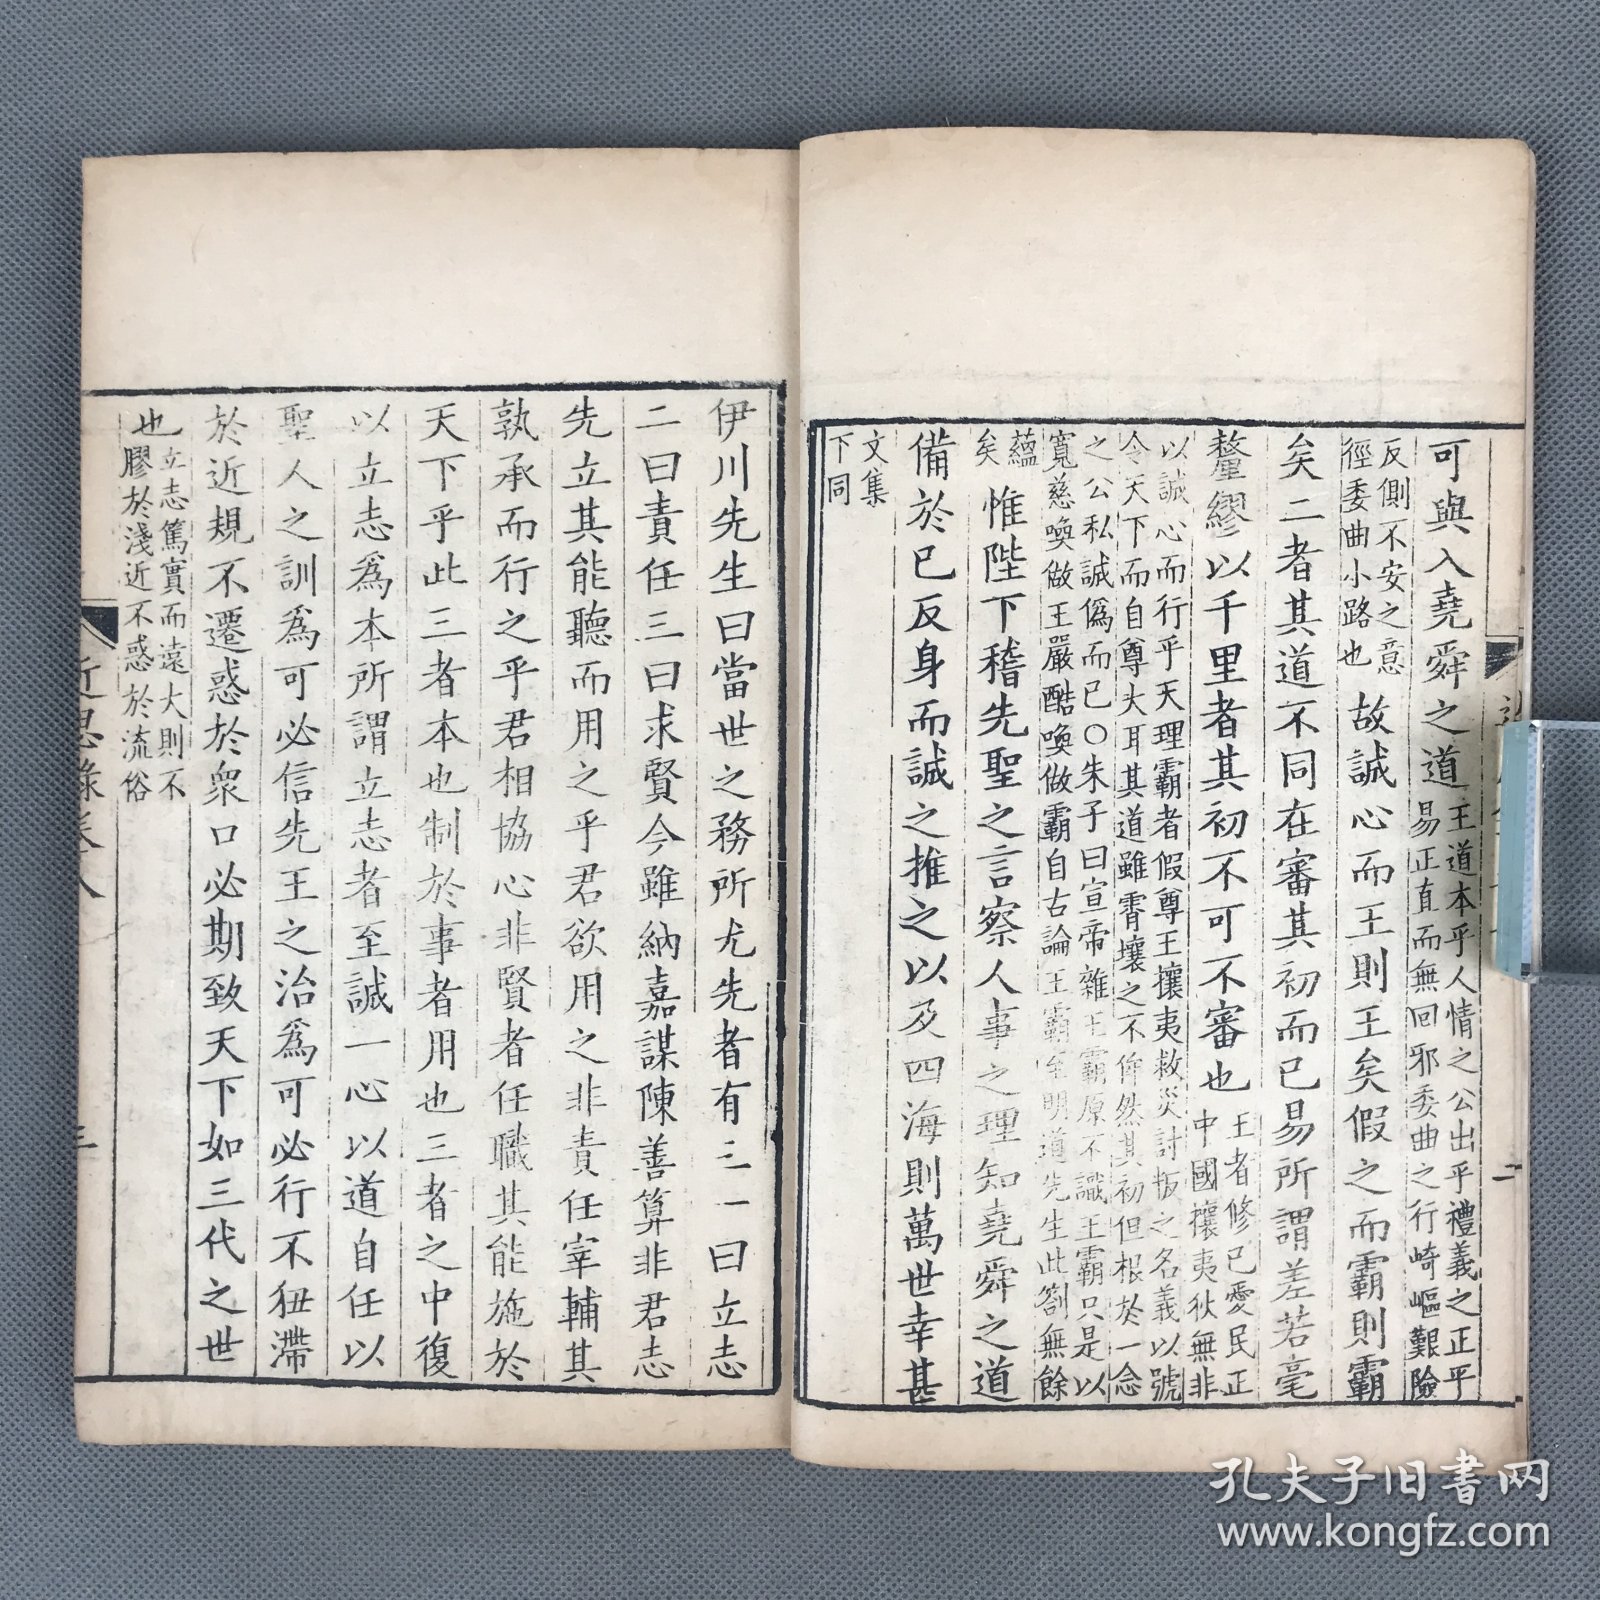 可與入堯舜之道王道本乎人情之公出乎禮義之正平
易正直而無回邪委曲之行崎嶇艱險
反側不安之意
徑委曲小路也故誠心而王則王矣假之而霸則霸
矣二者其道不同在審其初而已易所謂差若毫
釐繆以千里者其初不可不審也王者修己愛民正
中國攘夷狄無非
以誠心而行乎天理霸者假尊王攘夷救災討叛之名義以號
令天下而自尊大耳其道雖霄壤之不侔然其初但根於一念
之公私誠僞而已○朱子曰宣帝雜王霸原不識王霸只是以
寬慈喚做王嚴酷喚做霸自古論王霸至明道先生此劄無餘
蘊
矣惟陛下稽先聖之言察人事之理知堯舜之道
備於己反身而誠之推之以及四海則萬世幸甚
文集
下同
二
伊川先生曰當世之務所尤先者有三一曰立志
二曰責任三曰求賢今雖納嘉謀陳善算非君志
先立其能聽而用之乎君欲用之非責任宰輔其
孰承而行之乎君相協心非賢者任職其能施於
天下乎此三者本也制於事者用也三者之中復
以立志爲本所謂立志者至誠一心以道自任以
聖人之訓爲可必信先王之治爲可必行不狃滯
於近規不遷惑於衆口必期致天下如三代之世
也立志篤實而遠大則不
膠於淺近不惑於流俗
近思錄卷八
三
孔夫子旧书网
www.kongfz.com